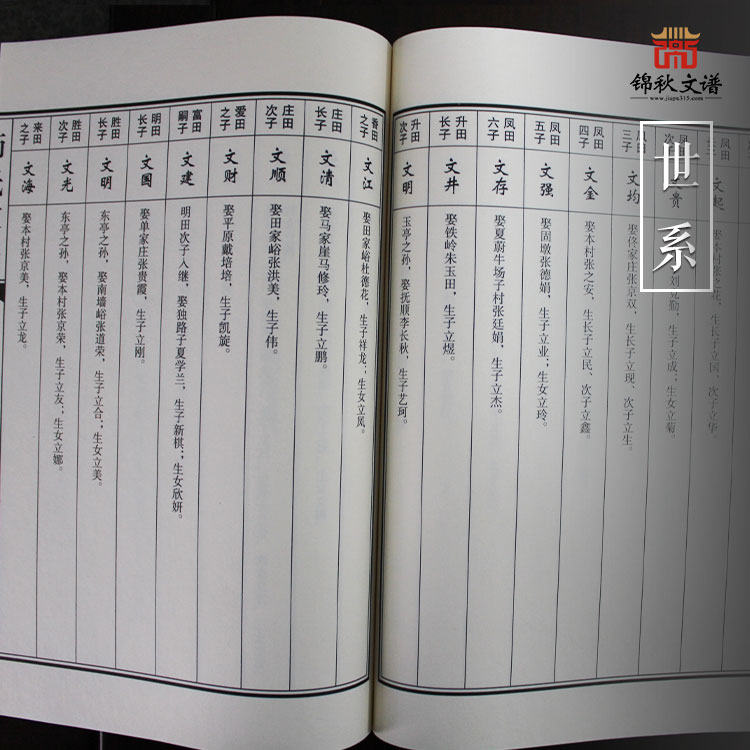 锦秋文谱
www.jiapu315.com
世系
文起
娶本村张之花，生长子立国、次子立华。
贵
刘克勤，生子立成；生女立菊。
三子
文均
娶佟家庄张京双，生长子立现、次子立生。
凤田
四子
文金
娶本村张之安，生长子立民、次子立鑫。
凤田
五子
文强
娶固墩张德娟，生子立业；生女立玲。
凤田
六子
文存
娶夏蔚牛场子村张廷娟，生子立杰。
升田
长子
文井
娶铁岭朱玉田，生子立煜。
升田
次子
文明
玉亭之孙，娶抚顺李长秋，生子艺珂。
香田
之子
文江
娶田家峪杜德花，生子祥龙；生女立凤。
庄田
长子
文清
娶马家崖马修玲，生子立鹏。
庄田
次子
文顺
娶田家峪张洪美，生子伟。
爱田
之子
文财
娶平原戴培培，生子凯旋。
富田
嗣子
文建
明田次子入继，娶独路子夏学兰，生子新棋；生女欣妍。
明田
长子
文国
娶单家庄张贵霞，生子立刚。
胜田
长子
文明
东亭之孙，娶南墙峪张道荣，生子立合；生女立美。
胜田
次子
文光
东亭之孙，娶本村张京荣，生子立友；生女立娜。
来田
之子
文海
娶本村张京美，生子立龙。